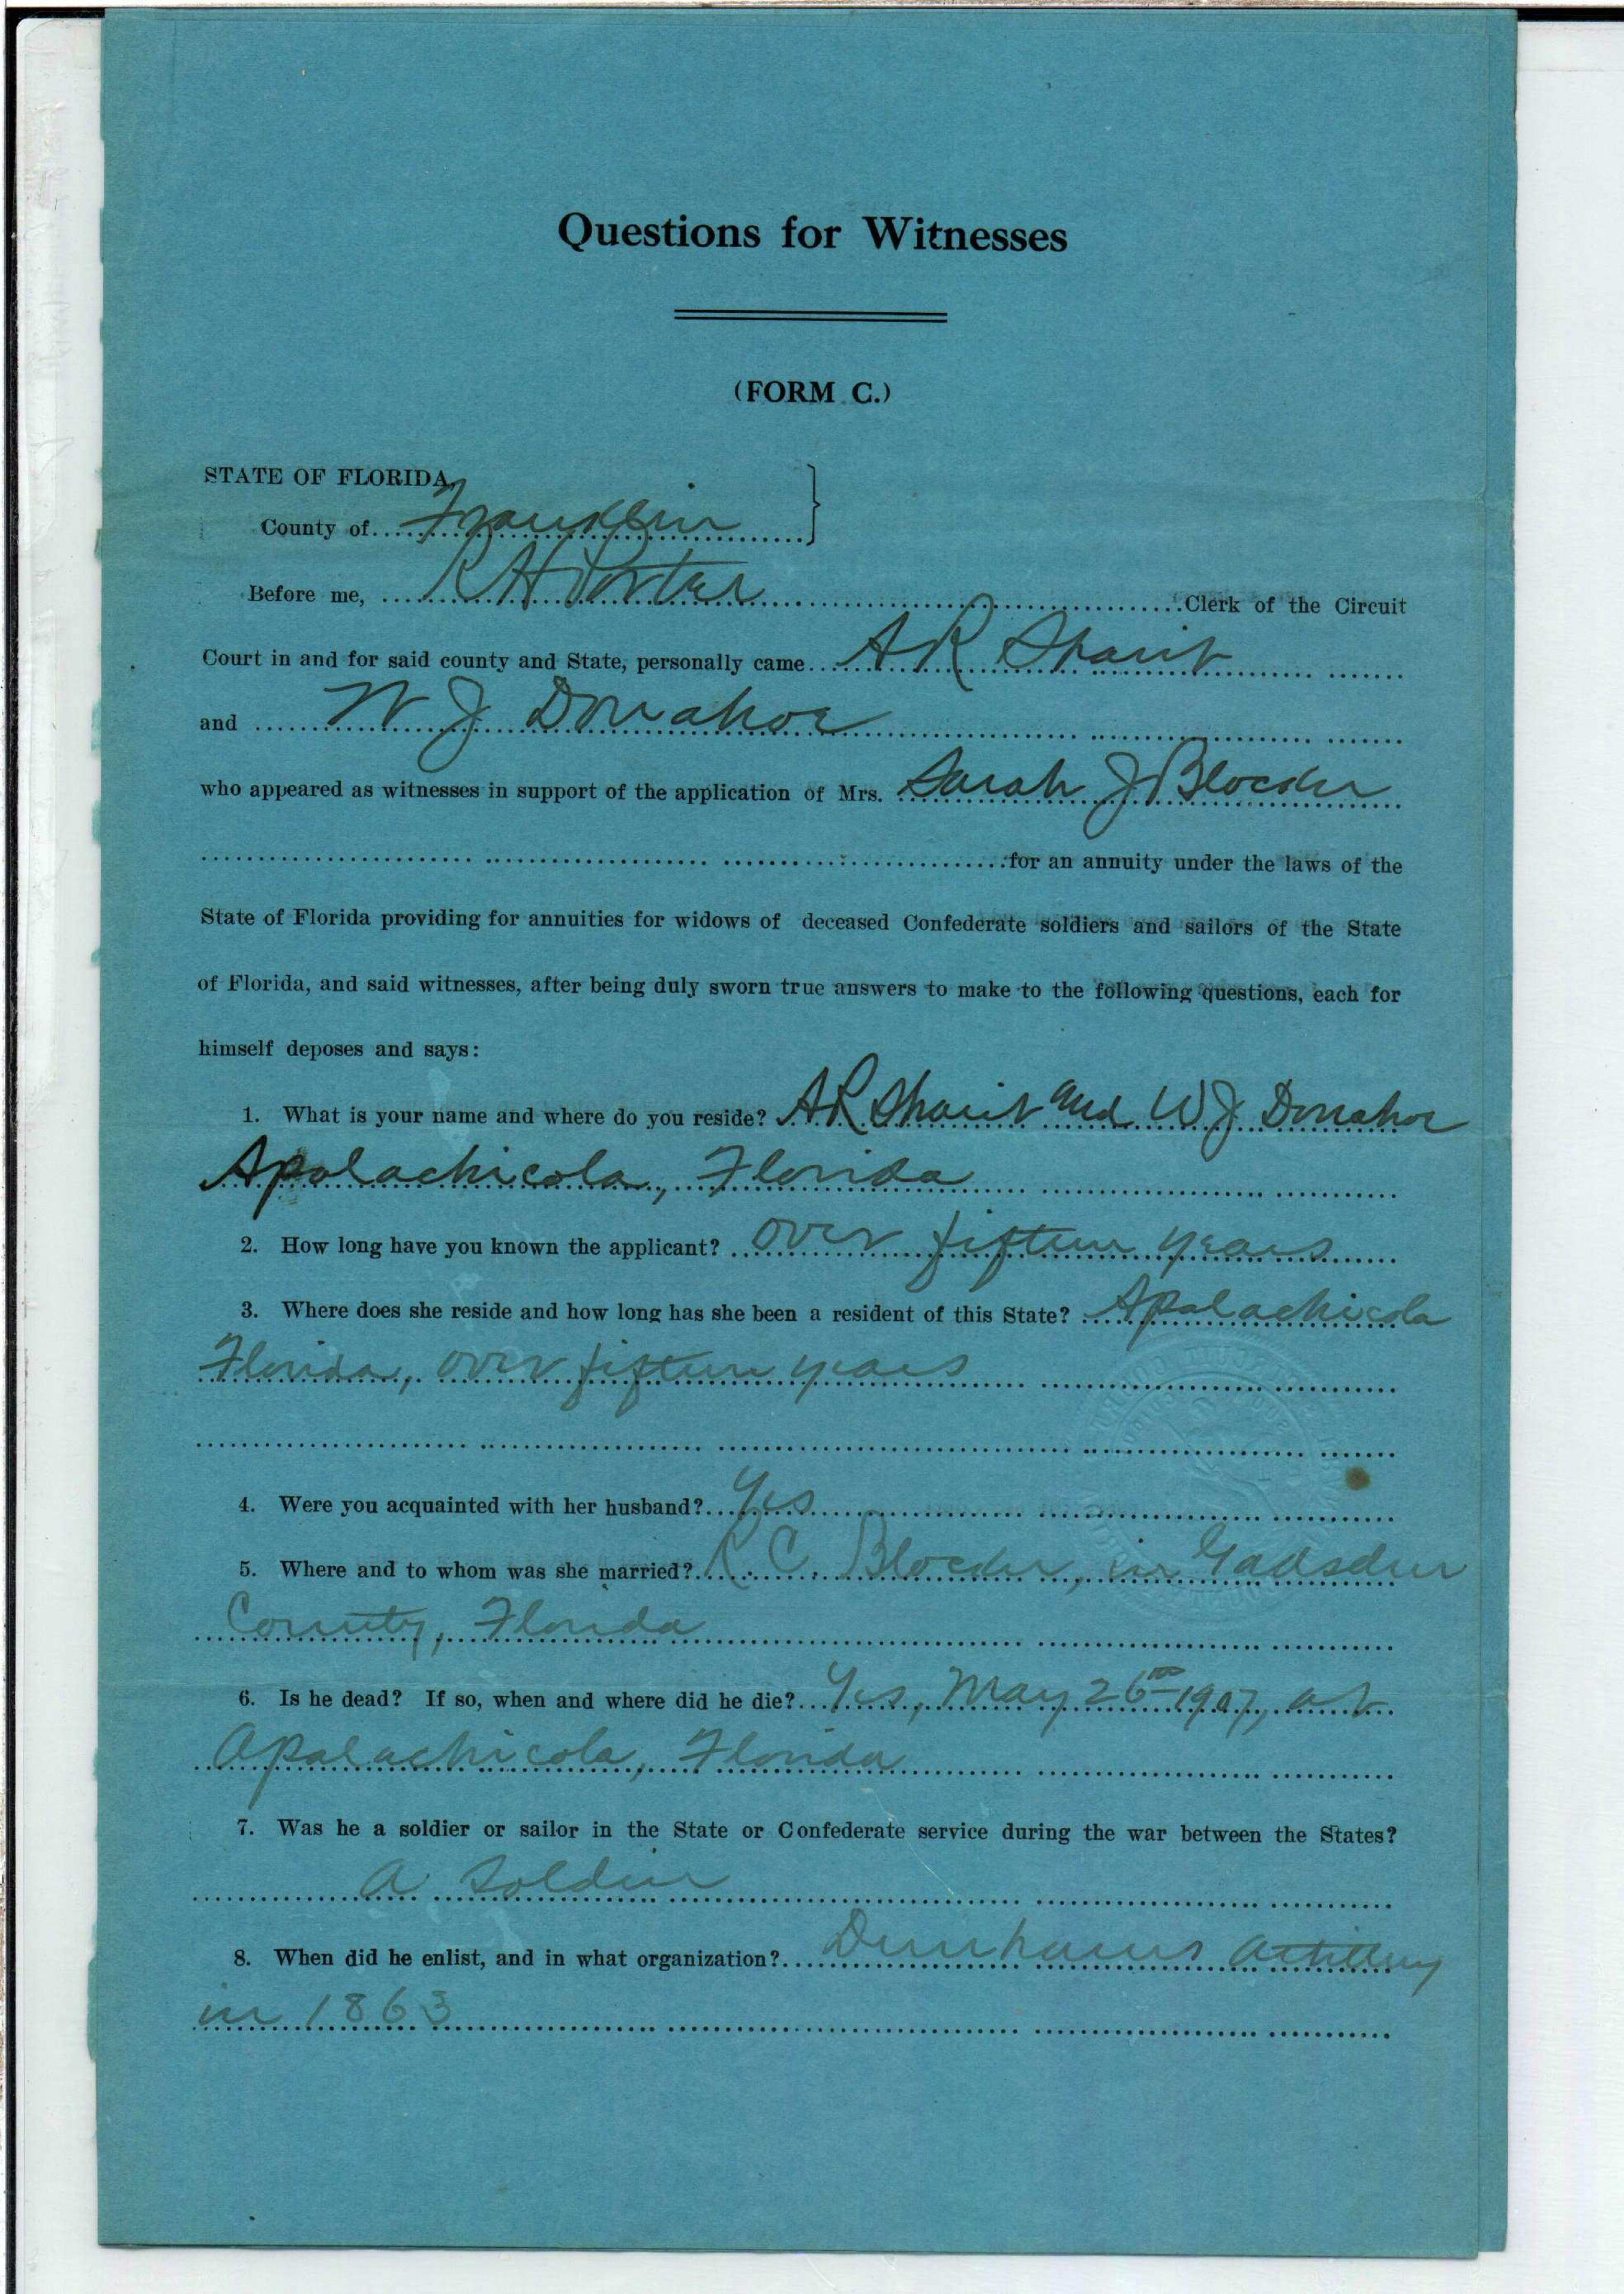 Questions for Witnesses
(FORM C.)
STATE OF FLORIDA,
County of Franklin
Before me, R H Porter Clerk of the Circuit
Court in and for said county and State, personally came A R Sharit
and W J Donahoe
who appeared as witnesses in support of the application of Mrs. Sarah J Blocker
for an annuity under the laws of the
State of Florida providing for annuities for widows of deceased Confederate soldiers and sailors of the State
of Florida, and said witnesses, after being duly sworn true answers to make to the following questions, each for
himself deposes and says:
1. What is your name and where do you reside? A R Sharit and W J Donahoe
Apalachicola, Florida
2. How long have you known the applicant? over fifteen years
3. Where does she reside and how long has she been a resident of this State? Apalachicola
Florida, over fifteen years
4. Were you acquainted with her husband? Yes
5. Where and to whom was she married? R C. Blocker, in Gadsden
County, Florida
6. Is he dead? If so, when and where did he die? Yes, May 26th 1907, at
Apalachicola, Florida
7. Was he a soldier or sailor in the State or Confederate service during the war between the States?
a Soldier
8. When did he enlist, and in what organization? Dunhams Artillery
in 1863